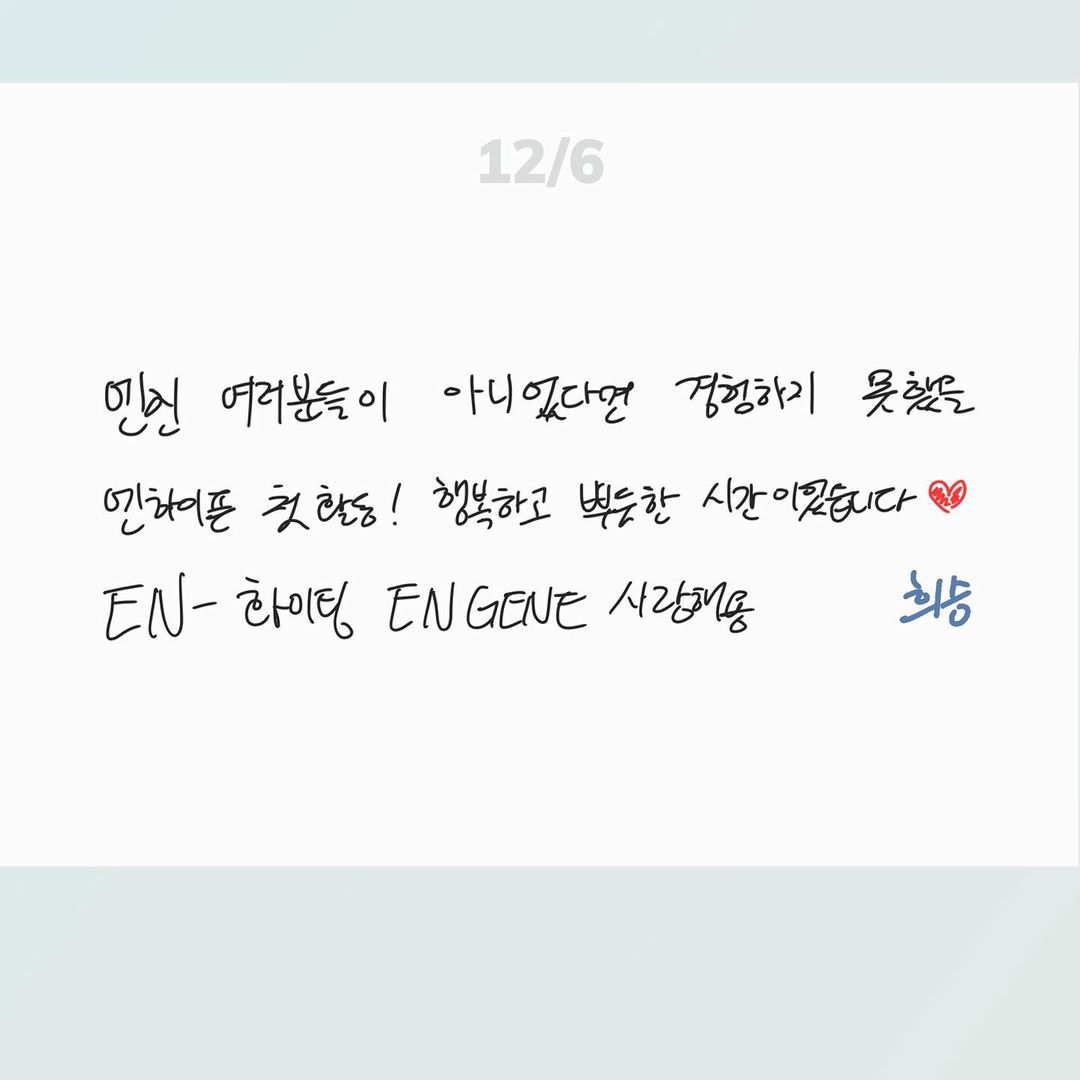 12/6
엔진 여러분들이 아니었다면 경험하지 못했을
엔하이픈 첫 활동! 행복하고 뿌듯한 시간이었습니다
EN- 하이팅 ENGENE 사랑해용 희승